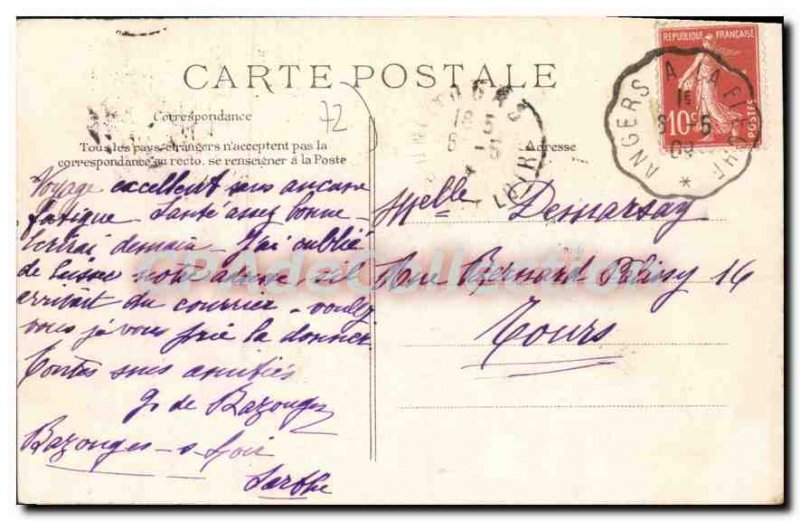 CARTE POSTALE
72
Correspondance
Tous les pays étrangers n'acceptent pas la
correspondance au recto. se renseigner à la Poste
Adresse
REPUBLIQUE FRANÇAISE
10
ANGERS A LA FLECHE
6 - 5
09
TOURS
18 5
6 - 5
LOIRE
Voyage excellent sans aucune
fatigue - Santé assez bonne -
écrirai demain - J'ai oublié
de laisser notre adresse, s'il
arrivait du courrier - voulez
vous je vous prie la donner.
Toutes nos amitiés
G. de Bazouges
Bazouges - s - Loir
Sarthe
Melle Demarsay
Rue Bernard Palissy 16
Tours
CPAdeCollection